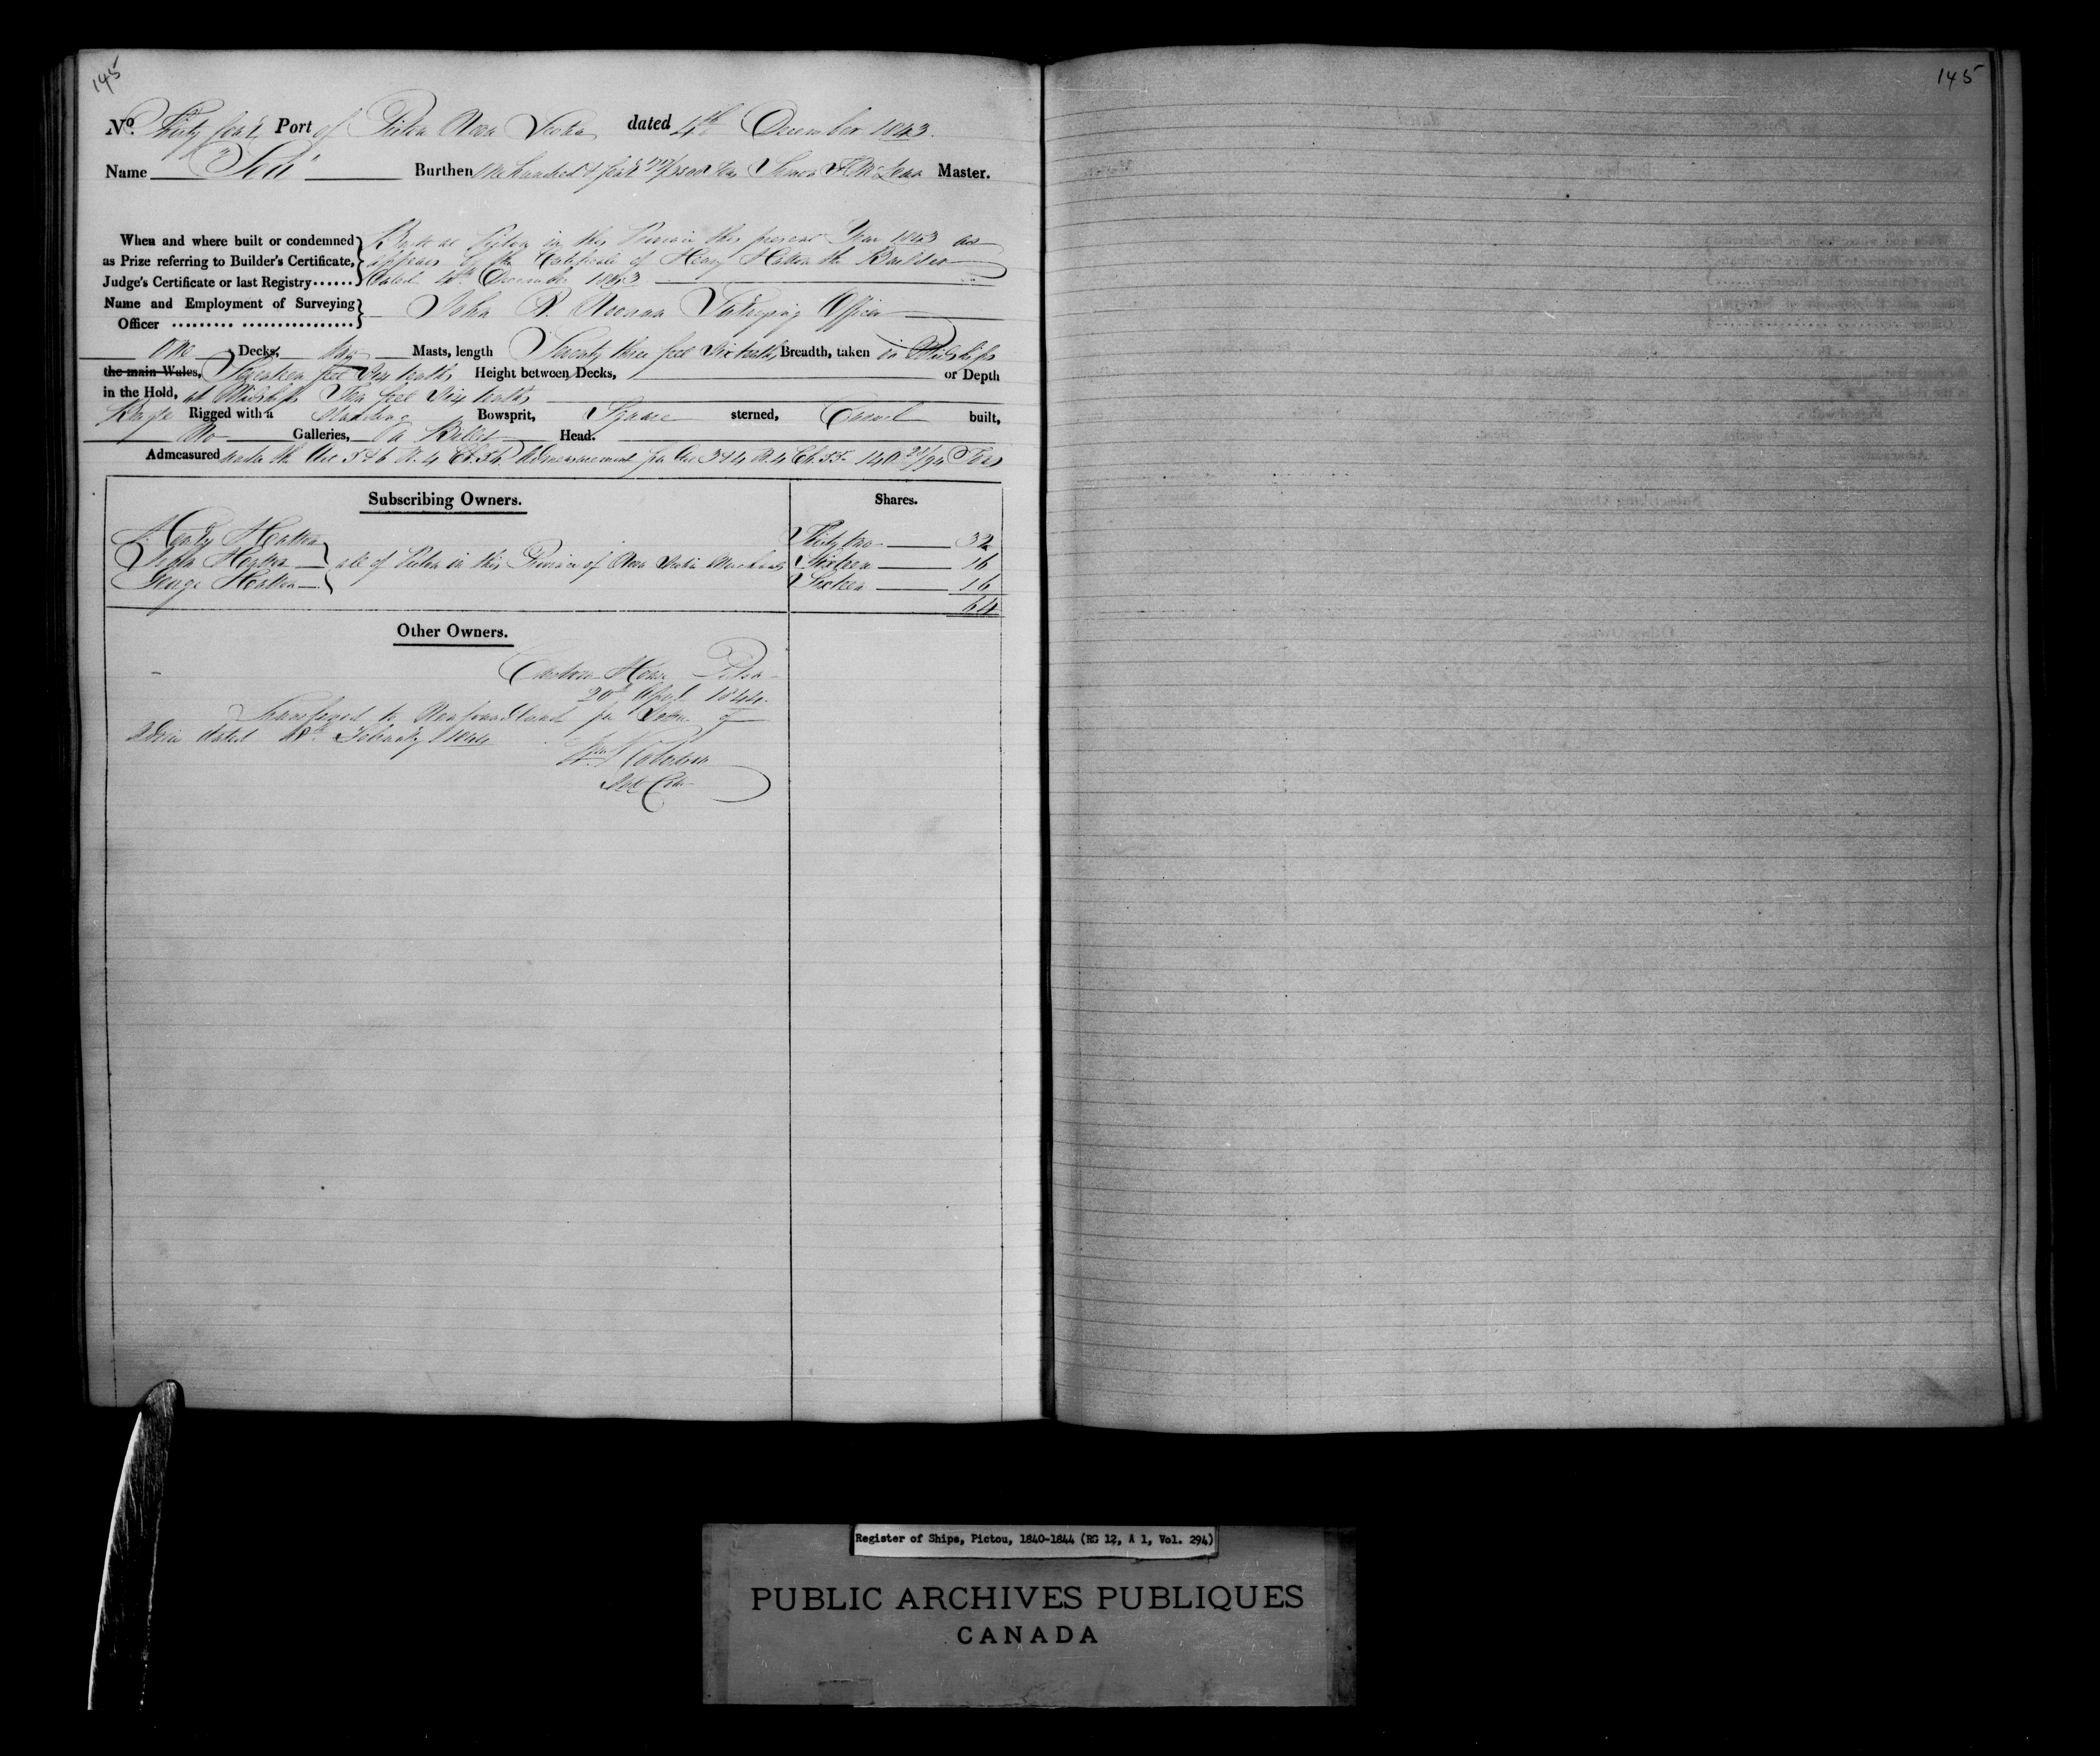 145
145
No. Thirty four Port of Pictou Nova Scotia dated 4th December 1843.
Name Burthen One hundred & four Tons Master.
When and where built or condemned as Prize referring to Builder's Certificate, Judge's Certificate or last Registry......
Built at Pictou in this Province this present Year 1843 as
appears by the Certificate of Henry Hatton the Builder
dated 4th December 1843
Name and Employment of Surveying Officer .......... .................
John R. Noonan Surveying Officer
One Decks, two Masts, length Seventy three feet Six tenths Breadth, taken in Midships
the main Wales, Seventeen feet tenths Height between Decks, or Depth
in the Hold, at Midships Ten feet Six tenths
Rigged with a standing Bowsprit, Square sterned, Carvel built,
No Galleries, a Billet Head.
Admeasured under the Act 5 & 6 W. 4 Ch. 56. Admeasurement per Act 3 & 4 W. 4 Ch. 55. 140 /94 Tons
Subscribing Owners. Shares.
Henry Hatton Thirty two 32
John Hatton all of Pictou in this Province of Nova Scotia Merchants Sixteen 16
George Hatton Sixteen 16
64
Other Owners.
Custom House Pictou
20th April 1844.
Transferred to Newfoundland per Letter of
Advice dated February 1844
Register of Ships, Pictou, 1840-1844 (RG 12, A 1, Vol. 294)
PUBLIC ARCHIVES PUBLIQUES
CANADA